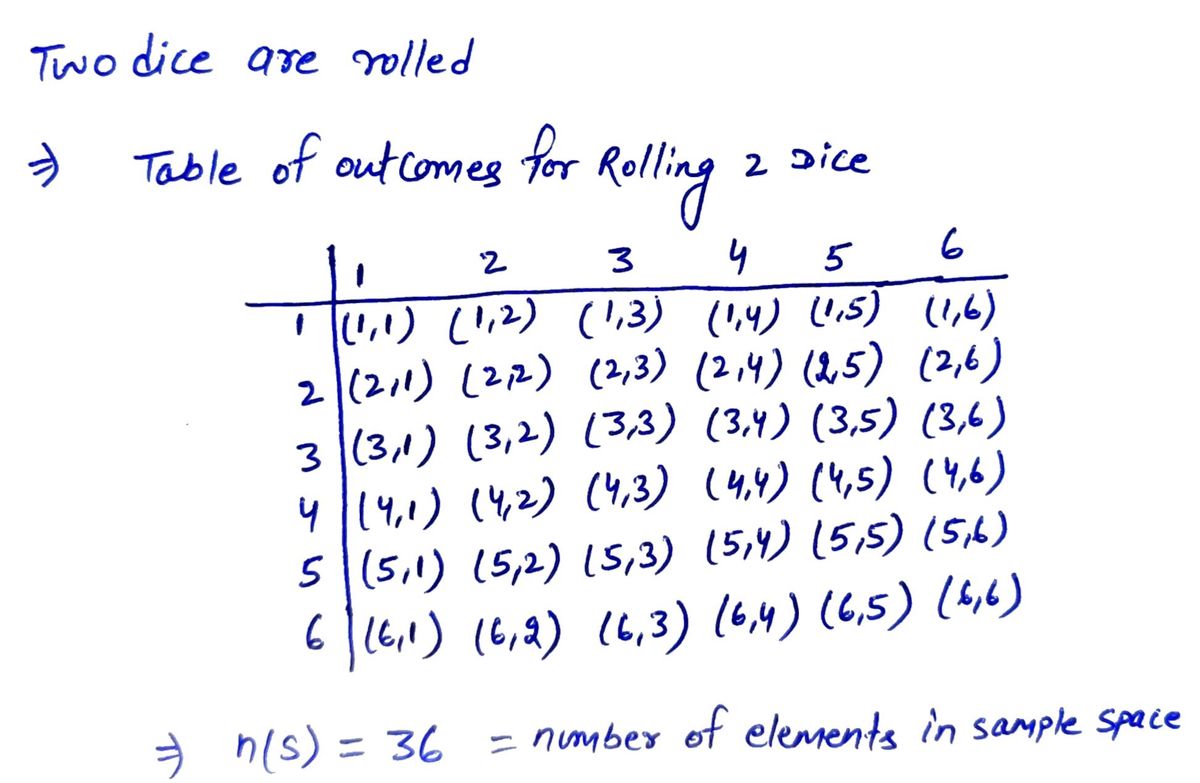 Two dice are rolled
⇒ Table of outcomes for Rolling 2 Dice
1 2 3 4 5 6
1 (1,1) (1,2) (1,3) (1,4) (1,5) (1,6)
2 (2,1) (2,2) (2,3) (2,4) (2,5) (2,6)
3 (3,1) (3,2) (3,3) (3,4) (3,5) (3,6)
4 (4,1) (4,2) (4,3) (4,4) (4,5) (4,6)
5 (5,1) (5,2) (5,3) (5,4) (5,5) (5,6)
6 (6,1) (6,2) (6,3) (6,4) (6,5) (6,6)
⇒ n(s) = 36 = number of elements in sample space